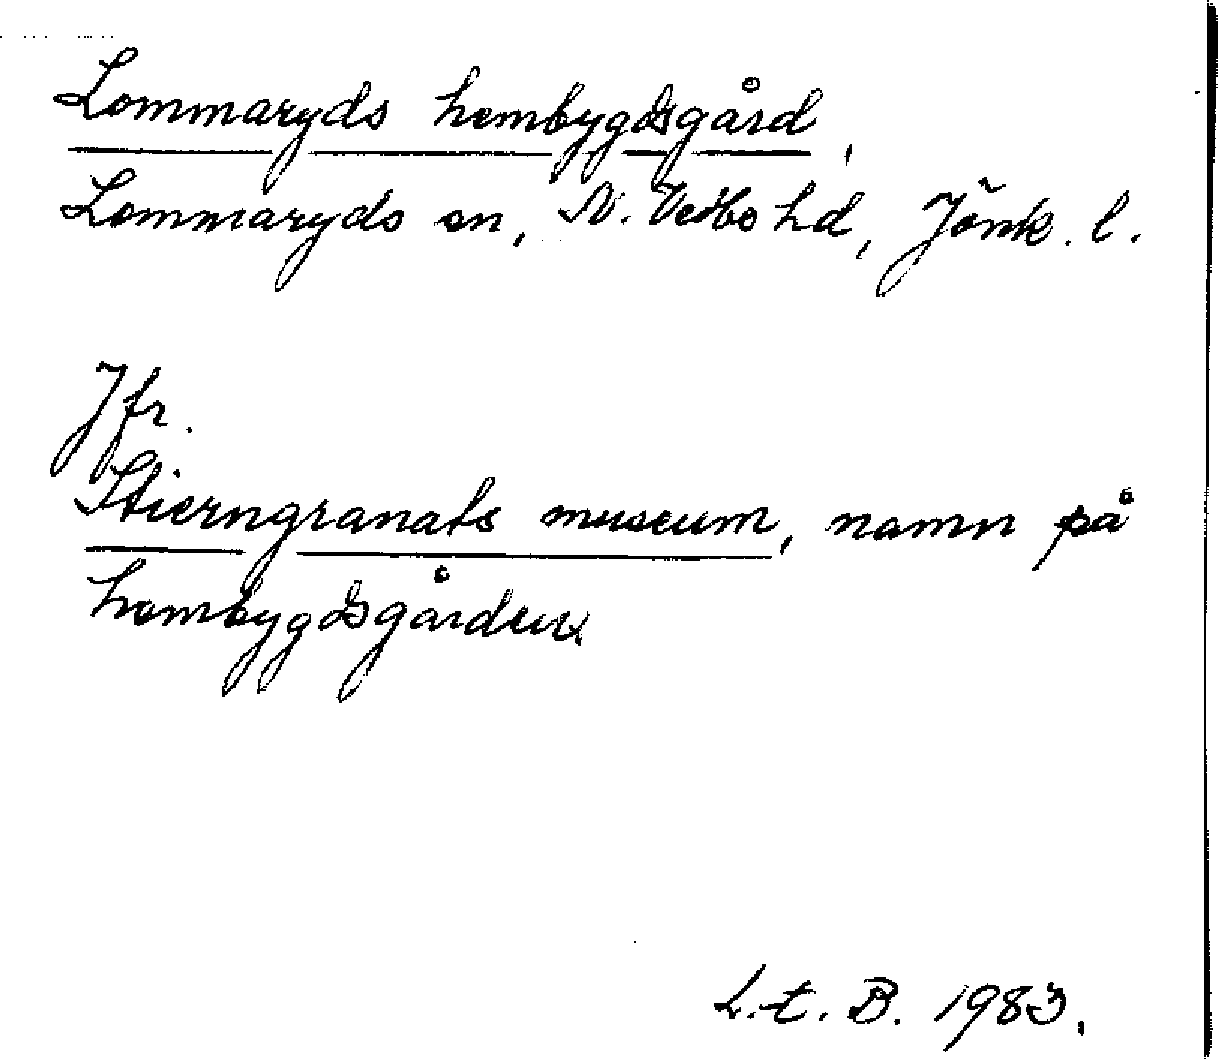 Lommaryds hembygdsgård,
Lommaryds sn, N. Vedbo hd, Jönk. l.
Jfr.
Stierngranats museum, namn på
hembygdsgården
L.t.B. 1983.